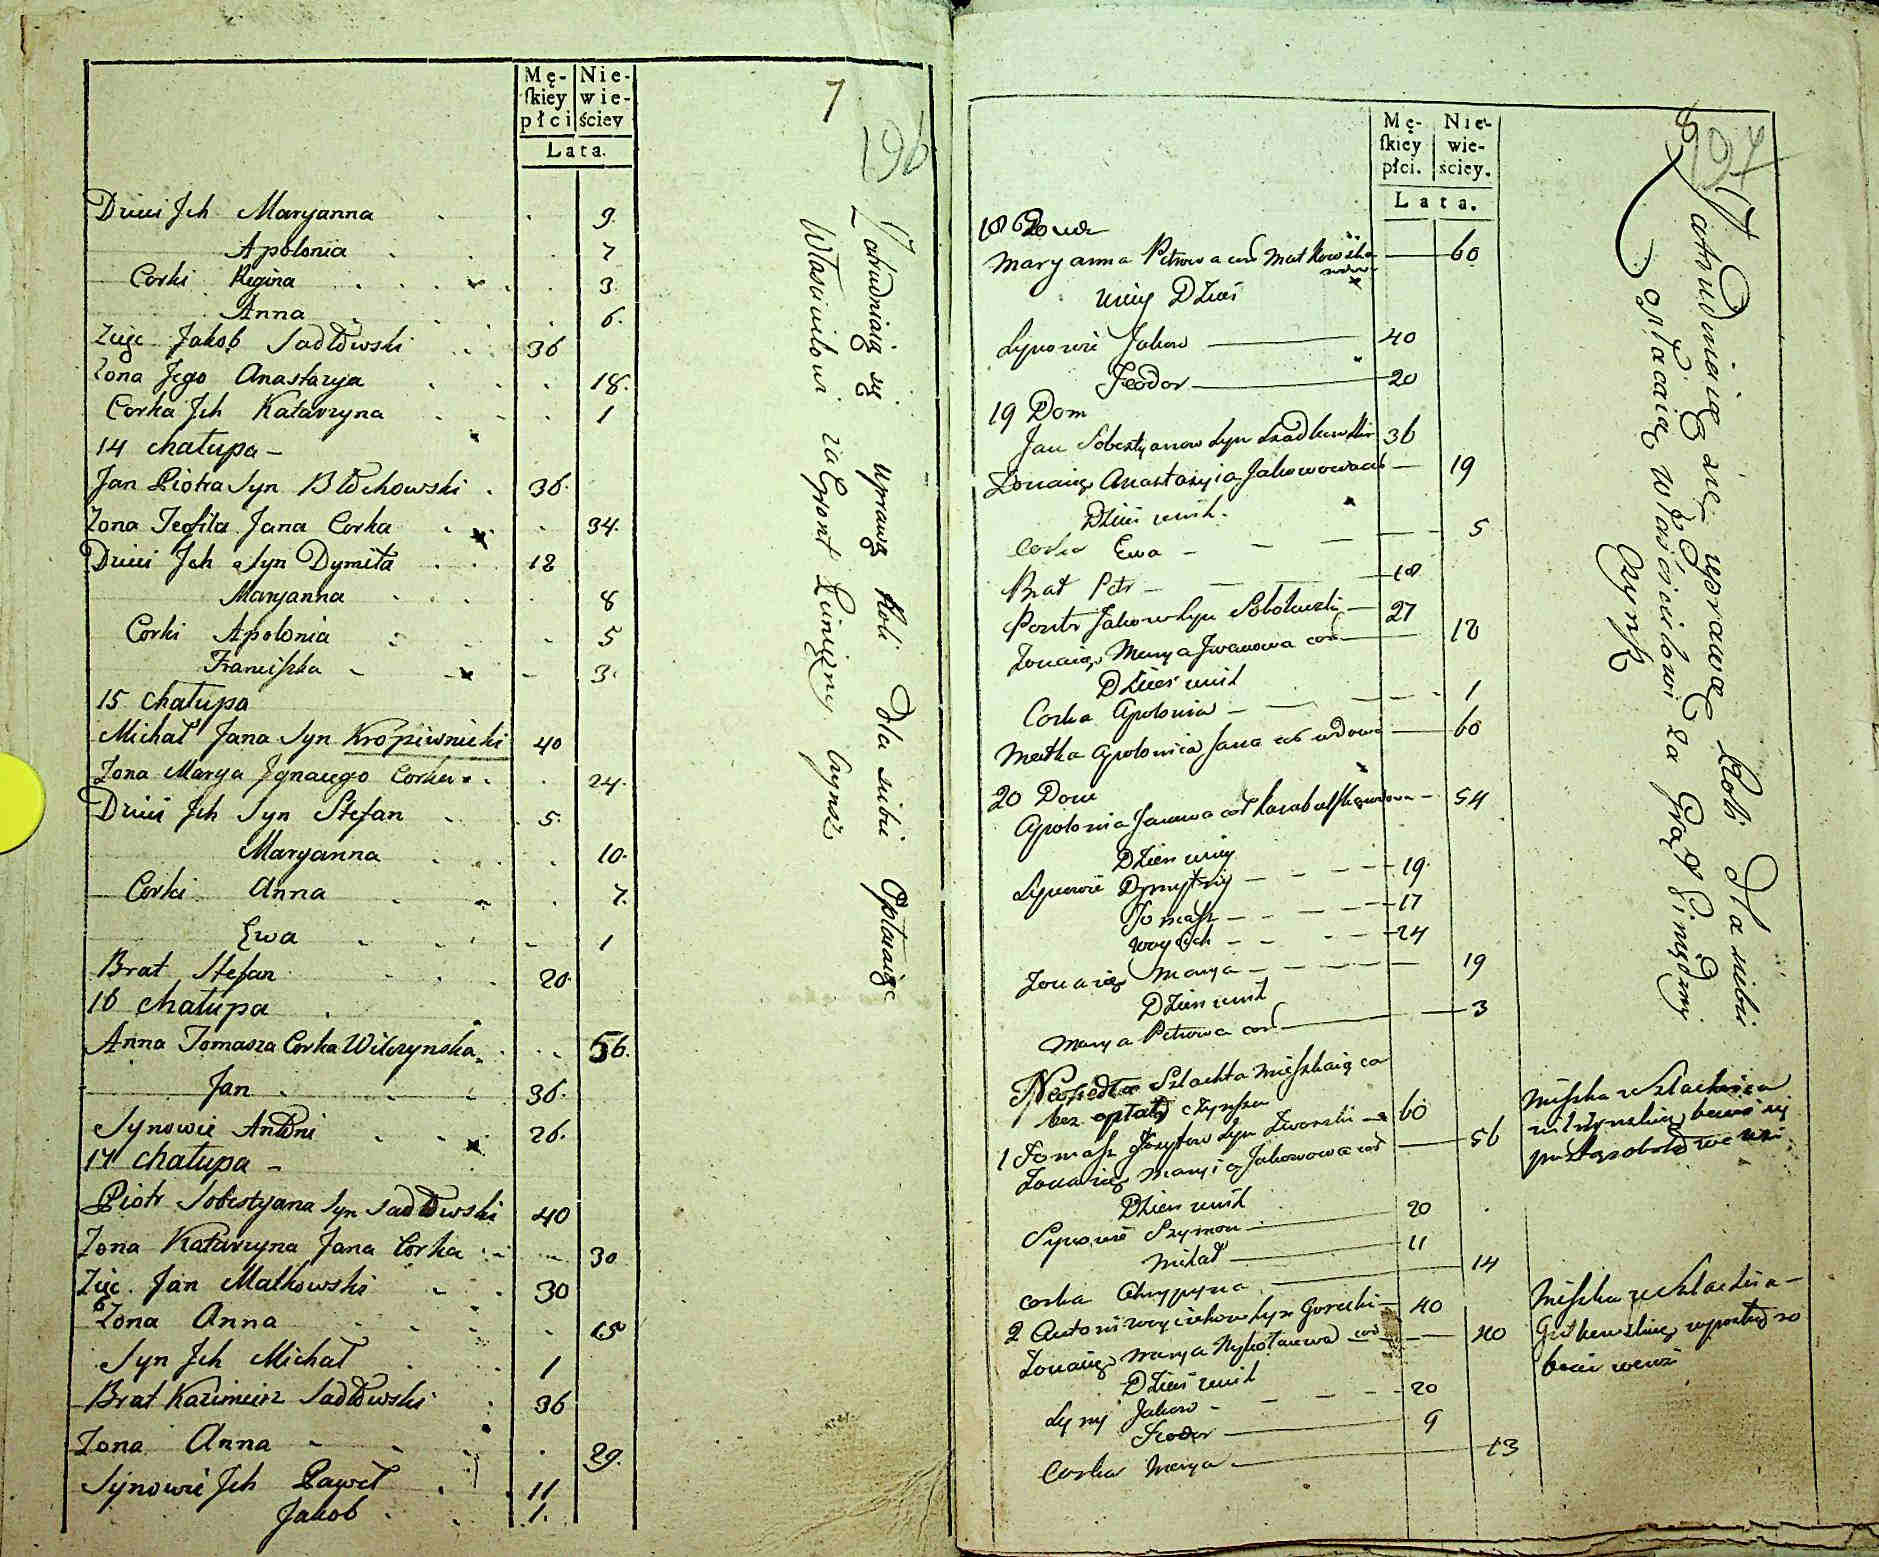 Mę-
skiey
płci
Nie-
wie-
ściey
Lata.
7
196
Dzieci Ich Maryanna 9
Apolonia 7
Corki Regina 3
Anna 6.
Zięć Jakob Sadłowski 36
Zona Jego Anastazya 18.
Corka Ich Katarzyna 1
14 chałupa –
Jan Piotra Syn Błochowski 36.
Zona Teofila Jana Corka 34.
Dzieci Ich Syn Dymitr 12
Maryanna 8
Corki Apolonia 5
Franciszka 3.
15 chałupa
Michał Jana Syn Kropiwnicki 40
Zona Marya Ignacego Corka 24.
Dzieci Ich Syn Stefan 5.
Maryanna 10.
Corki Anna 7.
Ewa 1
Brat Stefan 20.
16 chałupa
Anna Tomasza Corka Wilczynska 56.
Jan 36.
Synowie Antoni 26.
17 chałupa –
Piotr Sobestyana Syn Sadłowski 40
Zona Katarzyna Jana Corka 30
Zięć Jan Malkowski 30
Zona Anna 15
Syn Ich Michał 1
Brat Kazimierz Sadłowski 36
Zona Anna 29.
Synowie Ich Paweł 11
Jakob 1.
Zatrudniaią się uprawą Roli dla siebie Opłacaiąc
Własicielowi za Gront Pieniężny Czynsz
Mę-
skiey
płci.
Nie-
wie-
sciey.
Lata.
8
197
18 Dom
Maryanna Petrowa Matkowska 60
Dzieci
Synowie Jakow 40
Feodor 20
19 Dom
Jan Sobestyanow Syn 36
Zona iego Anastazyia Jakowowa 19
Dzieci
Corka Ewa 5
Brat Petr 18
Jakow Syn 27
Zona iego Marya Iwanowa 18
Dzieci
Corka Apolonia 1
Matka Apolonia Jana wdowa 60
20 Dom
Apolonia Janowa 54
Dzieci
Synowie Dymytry 19.
Tomasz 17
Woyciech 24
Zona iego Marya 19
Dzieci
Marya Petrowa 3
Szlachta mieszkaiąca
bez opłaty czynszu
1 Tomasz Jozefow Syn 60
Zona iego Maryia Jakowowa 56
Dzieci
Synowie Szymon 20
Michał 11
Corka 14
2 Antoni Syn Gorecki 40
Zona iego Marya Mykołaiewa 40
Dzieci
Syny Jakow 20
Feodor 9
Corka Marya 13
Zatrudniaią się uprawą Roli dla siebie
Opłacaią właścicielowi za Grąt Pieniężny
Czynsz
Miszka
Miszka